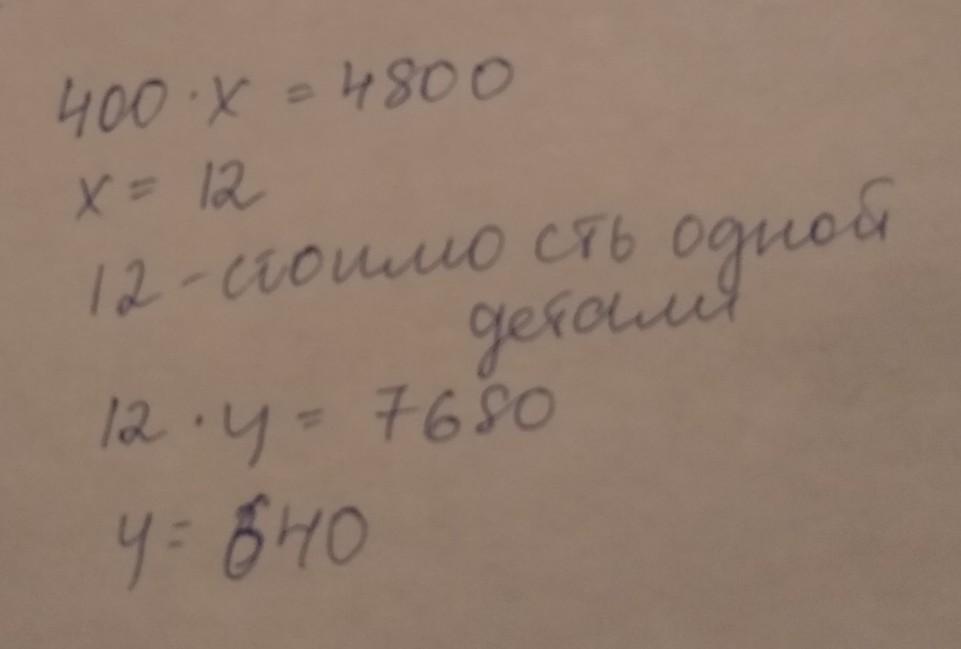 400 · x = 4800
x = 12
12 - стоимость одной
детали
12 · y = 7680
y = 640